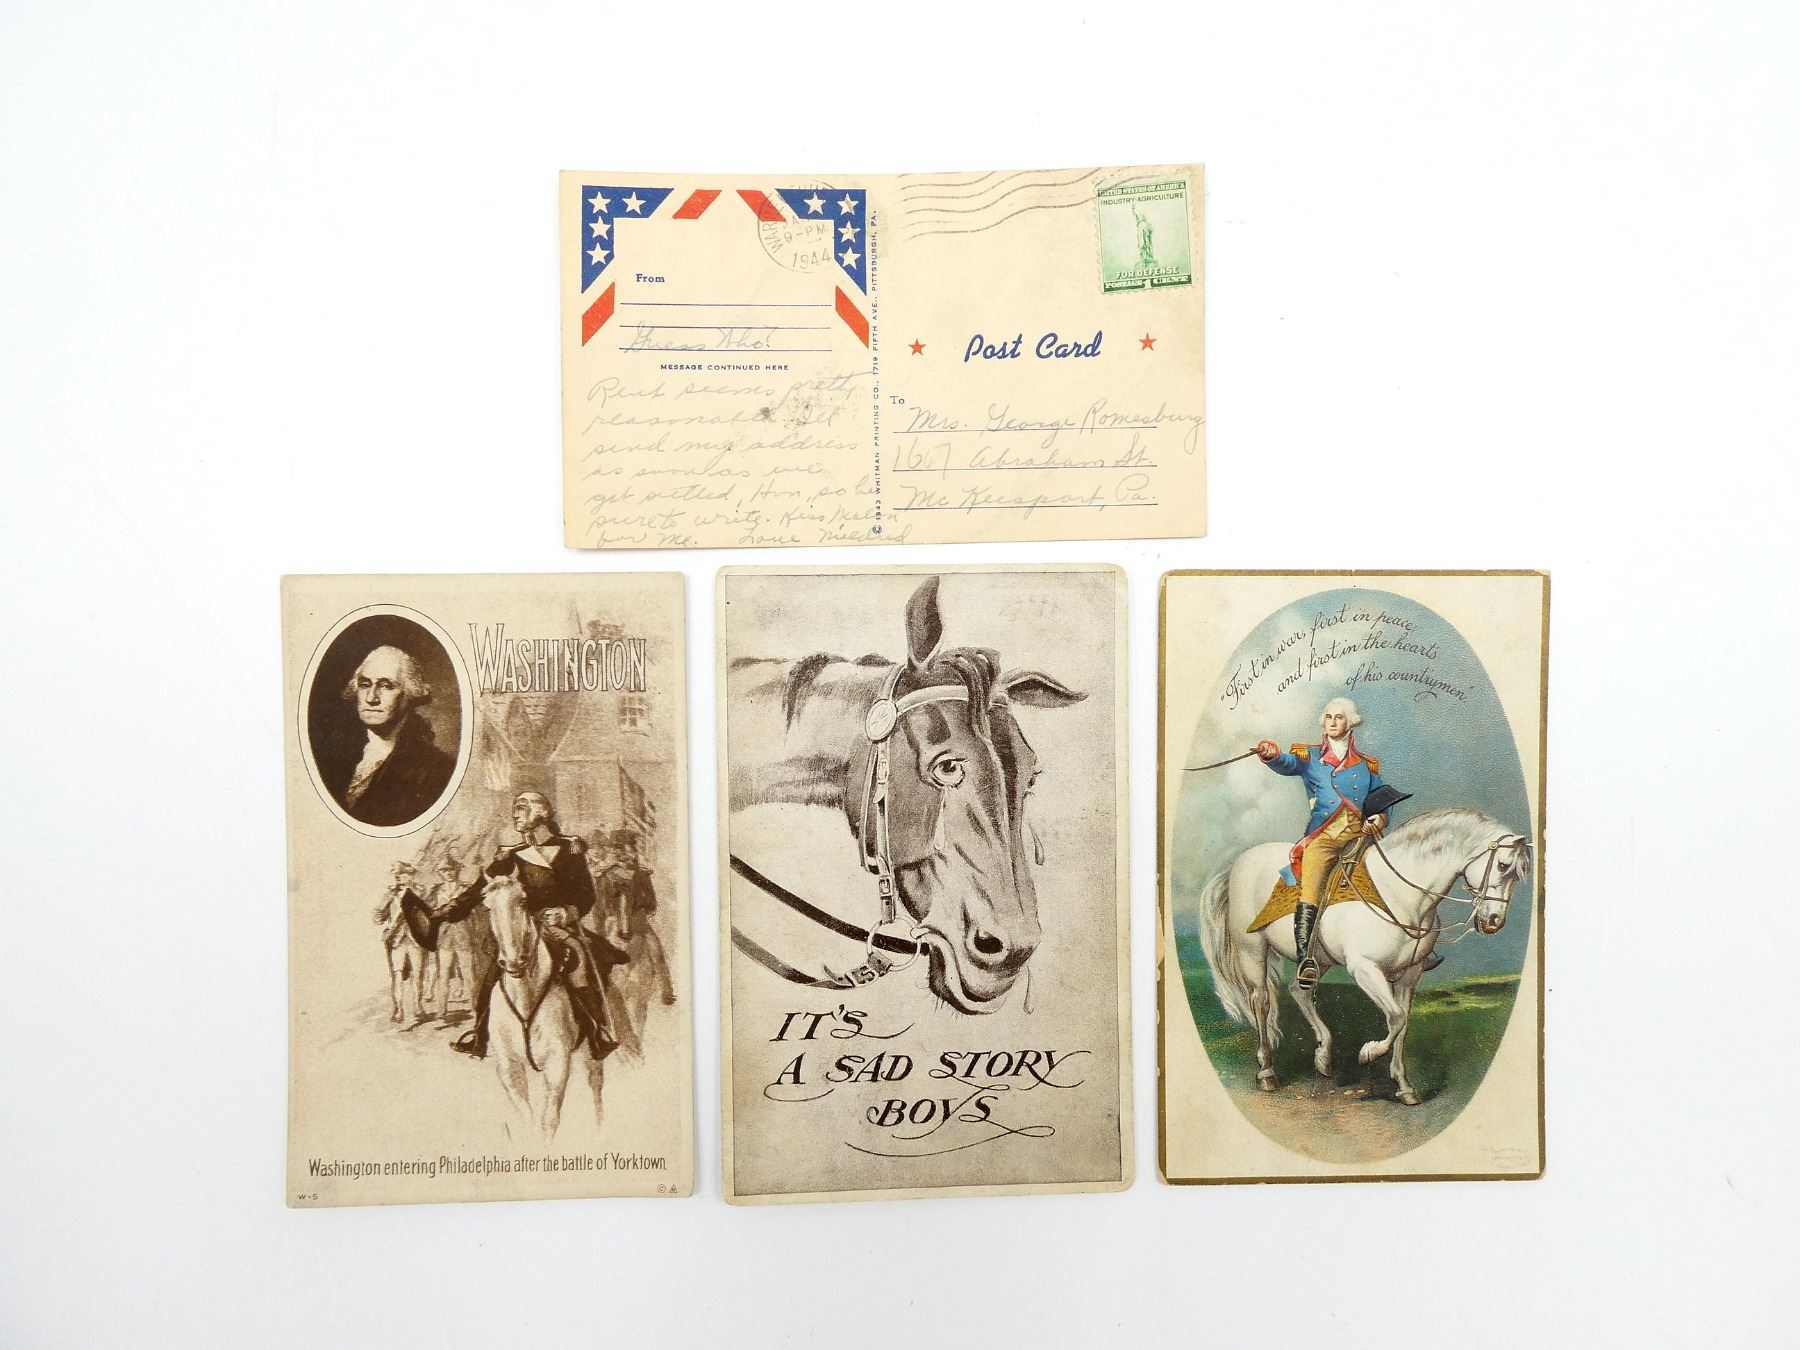 From
Guess Who?
MESSAGE CONTINUED HERE
Rent seems pretty
reasonable. I'll
send my address
as soon as we
get settled, Hon, so be
sure to write. Kiss
for me. Love Mildred
WARRE
9-PM
1944
© 1943 WHITMAN PRINTING CO., 1719 FIFTH AVE., PITTSBURGH, PA.
UNITED STATES OF AMERICA
INDUSTRY AGRICULTURE
FOR DEFENSE
POSTAGE 1 CENT
Post Card
To
Mrs. George Romesburg
1607 Abraham St.
Mc Keesport, Pa.
WASHINGTON
Washington entering Philadelphia after the battle of Yorktown
W-5
©
IT'S
A SAD STORY
BOYS
"First in war, first in peace,
and first in the hearts
of his countrymen"